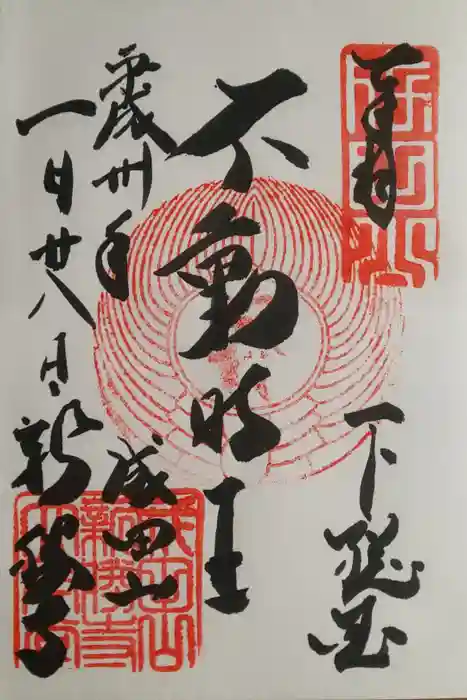 奉拝
下総国
不動明王
平成卅年
一月廿八日
成田山
新勝寺
成田山
新勝寺